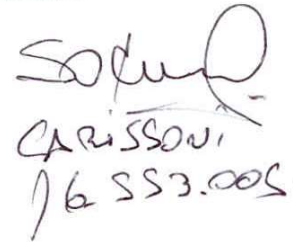 CARISSONI
16.553.005